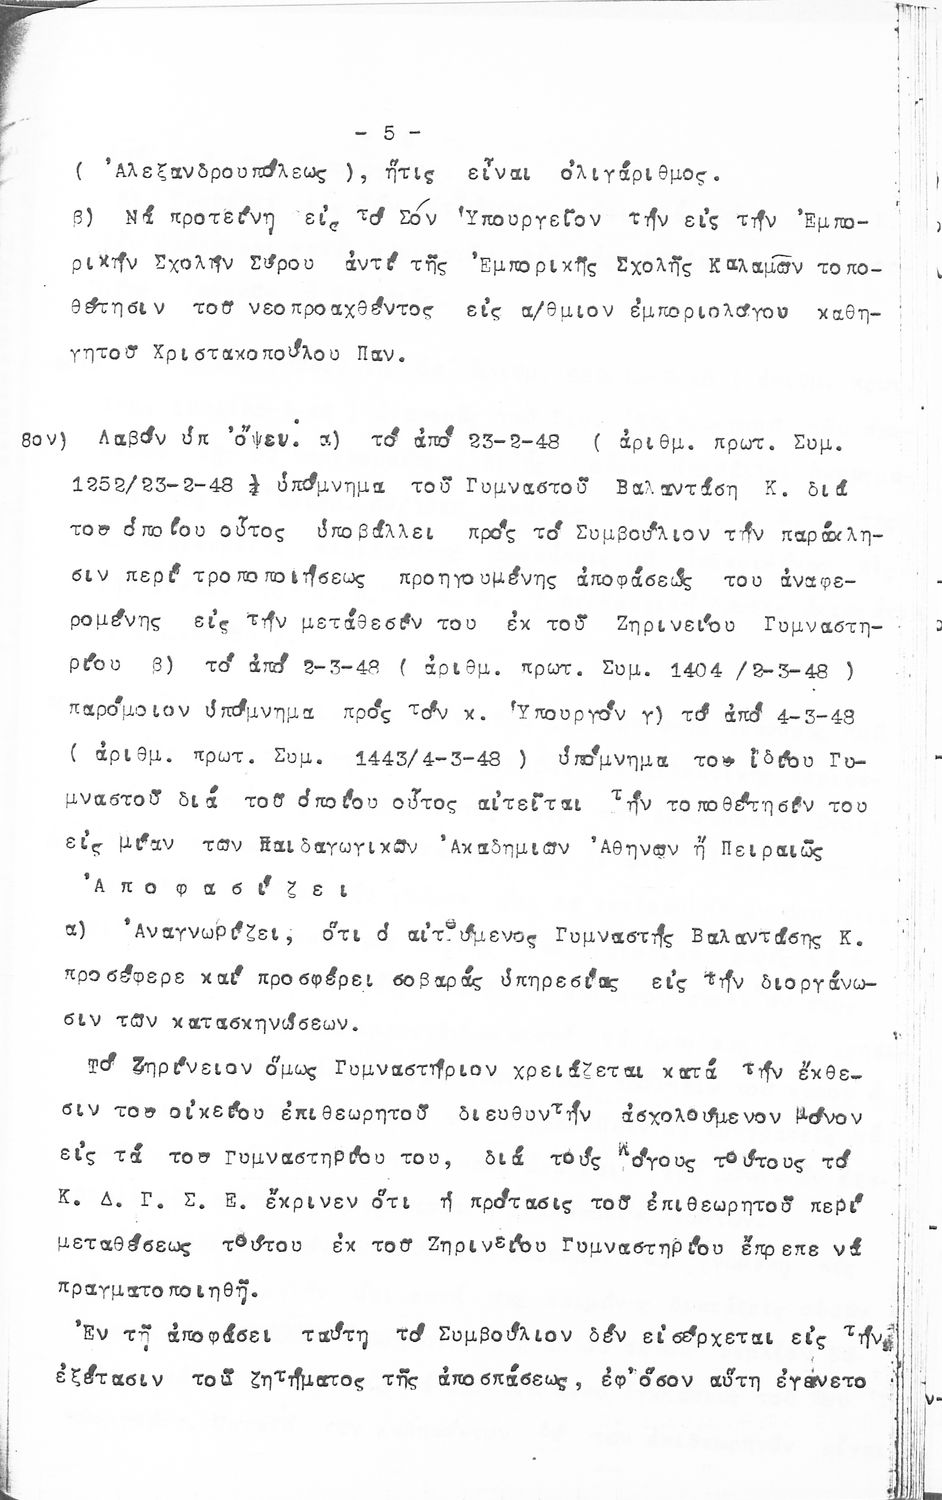 - 5 -
( Ἀλεξανδρουπόλεως ), ἥτις εἶναι ὀλιγάριθμος.
β) Νά προτείνη εἰς τό Σόν Ὑπουργεῖον τήν εἰς τήν Ἐμπο-
ρικήν Σχολήν Σύρου ἀντί τῆς Ἐμπορικῆς Σχολῆς Καλαμῶν τοπο-
θέτησιν τοῦ νεοπροαχθέντος εἰς α/θμιον ἐμποριολόγου καθη-
γητοῦ Χριστακοπούλου Παν.
8ον) Λαβόν ὑπ' ὄψει: α) τό ἀπό 23-2-48 ( ἀριθμ. πρωτ. Συμ.
1252/23-2-48 ) ὑπόμνημα τοῦ Γυμναστοῦ Βαλαντάση Κ. διά
τοῦ ὁποίου οὗτος ὑποβάλλει πρός τό Συμβούλιον τήν παράκλη-
σιν περί τροποποιήσεως προηγουμένης ἀποφάσεώς του ἀναφε-
ρομένης εἰς τήν μετάθεσίν του ἐκ τοῦ Ζηρινείου Γυμναστη-
ρίου β) τό ἀπό 2-3-48 ( ἀριθμ. πρωτ. Συμ. 1404 /2-3-48 )
παρόμοιον ὑπόμνημα πρός τόν κ. Ὑπουργόν γ) τό ἀπό 4-3-48
( ἀριθμ. πρωτ. Συμ. 1443/4-3-48 ) ὑπόμνημα τοῦ ἰδίου Γυ-
μναστοῦ διά τοῦ ὁποίου οὗτος αἰτεῖται τήν τοποθέτησίν του
εἰς μίαν τῶν Παιδαγωγικῶν Ἀκαδημιῶν Ἀθηνῶν ἤ Πειραιῶς
Ἀ π ο φ α σ ί ζ ε ι
α) Ἀναγνωρίζει, ὅτι ὁ αἰτούμενος Γυμναστής Βαλαντάσης Κ.
προσέφερε καί προσφέρει σοβαράς ὑπηρεσίας εἰς τήν διοργάνω-
σιν τῶν κατασκηνώσεων.
Τό Ζηρίνειον ὅμως Γυμναστήριον χρειάζεται κατά τήν ἔκθε-
σιν τοῦ οἰκείου ἐπιθεωρητοῦ διευθυντήν ἀσχολούμενον μόνον
εἰς τά τοῦ Γυμναστηρίου του, διά τούς λόγους τούτους τό
Κ. Δ. Γ. Σ. Ε. ἔκρινεν ὅτι ἡ πρότασις τοῦ ἐπιθεωρητοῦ περί
μεταθέσεως τούτου ἐκ τοῦ Ζηρινείου Γυμναστηρίου ἔπρεπε νά
πραγματοποιηθῇ.
Ἐν τῇ ἀποφάσει ταύτη τό Συμβούλιον δέν εἰσέρχεται εἰς τήν
ἐξέτασιν τοῦ ζητήματος τῆς ἀποσπάσεως, ἐφ' ὅσον αὕτη ἐγένετο